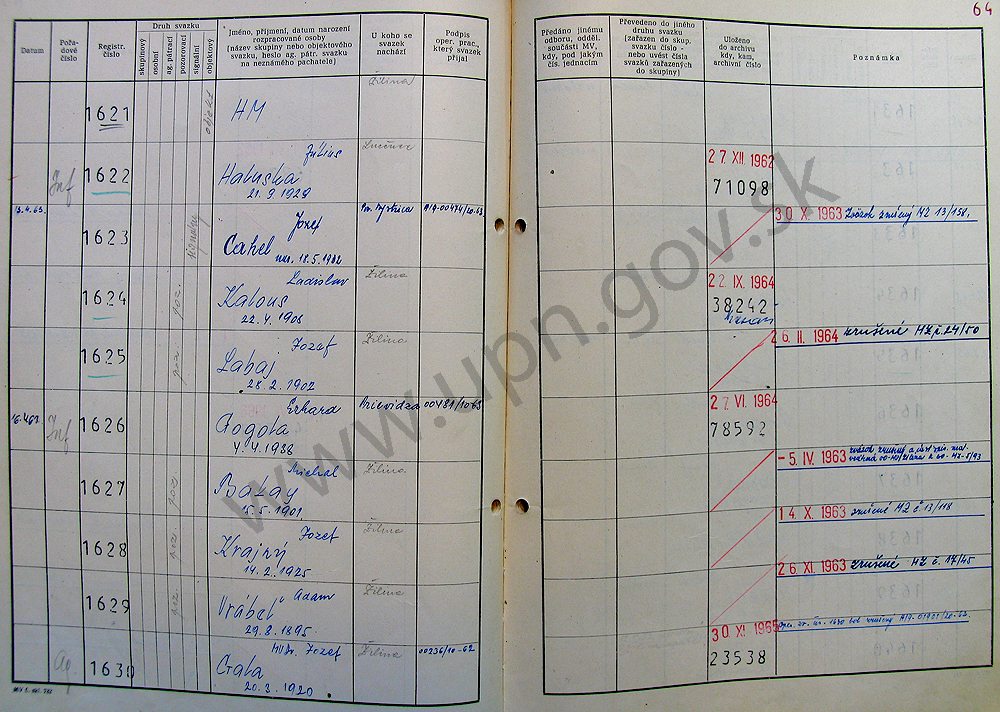 64
Datum
Pořa-
dové
číslo
Registr.
číslo
Druh svazku
skupinový
osobní
ag. pátrací
pozorovací
signální
objektový
Jméno, příjmení, datum narození
rozpracované osoby
(název skupiny nebo objektového
svazku, heslo ag. pátr. svazku
na neznámého pachatele)
U koho se
svazek
nachází
Podpis
oper. prac.,
který svazek
přijal
Předáno jinému
odboru, odděl.
součásti MV,
kdy, pod jakým
čís. jednacím
Převedeno do jiného
druhu svazku
(zařazen do skup.
svazku číslo -
nebo uvést čísla
svazků zařazených
do skupiny)
Uloženo
do archivu
kdy, kam,
archivní číslo
Poznámka
1621 objekt HM Žilina
Inf 1622 Július
Haluska
21. 9. 1929
Lučenec
27. XII. 1962
71098
1623 signálny Jozef
Cahel
nar. 18.5.1932
Pov. Bystrica
30 X. 1963
1624 poz. Ladislav
Kalous
22. 4. 1906
Žilina
22. IX. 1964
38242
1625 poz. Jozef
Labaj
28. 2. 1902
Žilina
26. II. 1964 zrušené MZ č. 24/50
Inf 1626 Erhard
Gogola
4. 4. 1938
Prievidza 00481/10-63
27 VI. 1964
78592
1627 poz Michal
Bazay
15. 5. 1901
Žilina
-5. IV. 1963
1628 poz Jozef
Krajný
14. 2. 1925
Žilina
14. X. 1963 zrušené MZ č 13/118
1629 poz Adam
Vrábel
29. 8. 1895.
Žilina
26. XI. 1963 zrušené MZ č. 17/45
Ag 1630 Jozef
Gala
20. 3. 1920
Žilina 00236/10-62
30. XI 1965
23538
www.upn.gov.sk